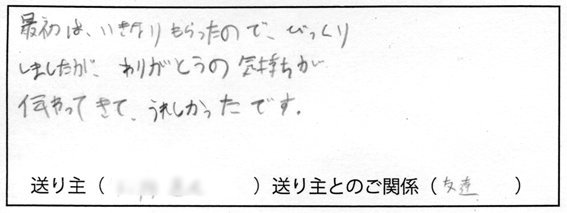 最初は、いきなりもらったので、びっくり
しましたが、ありがとうの気持ちが
伝わってきて、うれしかったです。
送り主（　　　）送り主とのご関係（友達　）